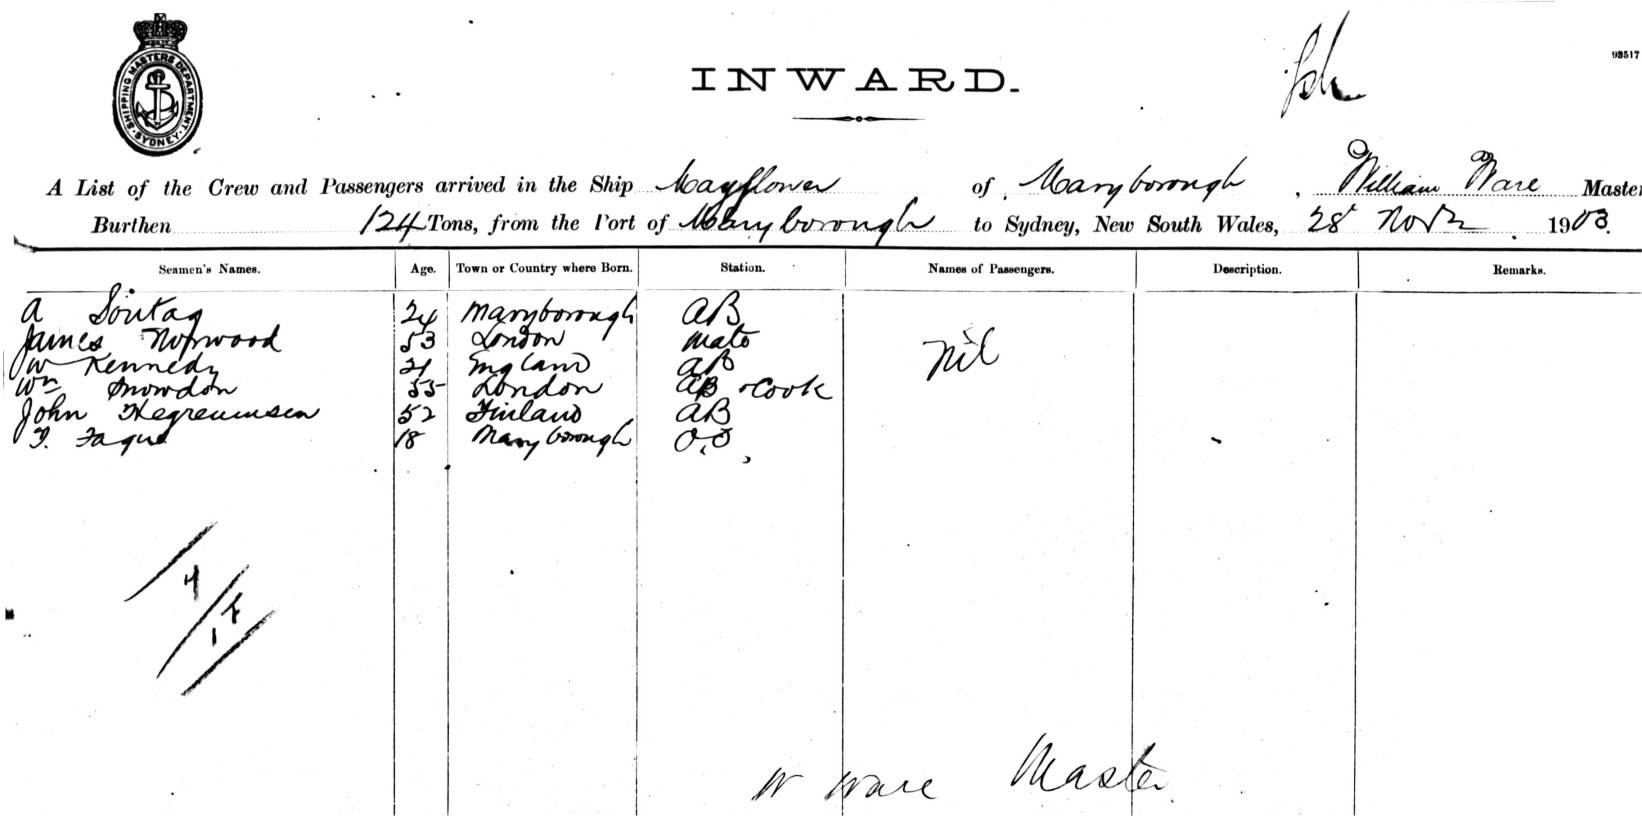 SHIPPING MASTERS DEPARTMENT
SYDNEY
93517
INWARD.
A List of the Crew and Passengers arrived in the Ship Mayflower of Maryborough, William Ware Master
Burthen 124 Tons, from the Port of Maryborough to Sydney, New South Wales, 28 Novr 1903.
Seamen's Names. Age. Town or Country where Born. Station. Names of Passengers. Description. Remarks.
A Sontag 24 Maryborough AB
James Norwood 53 London Mate
W Kennedy 21 England AB
Wm Snowdon 55 London AB & Cook
John 52 Finland AB
Nil
18 Maryborough O.S
W Ware Master